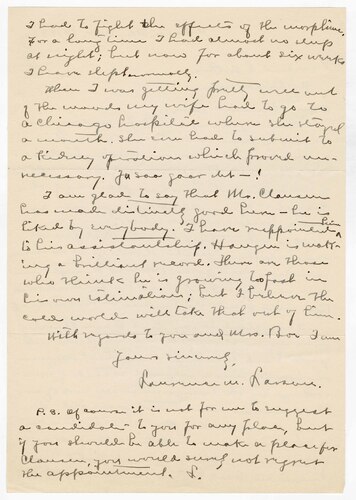 I had to fight the effects of the morphine.
For a long time I had almost no sleep
at night; but now for about six weeks
I have slept normally.
When I was getting pretty well out
of the woods my wife had to go to
a Chicago hospital where she stayed
a month. She even had to submit to
a kidney operation which proved un-
necessary. Ja saa gaar det—!
I am glad to say that Mr. Clausen
has made distinctly good here - he is
liked by everybody. I have reappointed him
to his assistantship. Haugen is mak-
ing a brilliant record. There are those
who think he is growing too fast in
his own estimation; but I believe the
cold world will take that out of him.
With regards to you and Mrs. Boe I am
Yours sincerely,
Laurence M. Larson.
P.S. Of course it is not for me to suggest
a candidate to you for any place, but
if you should be able to make a place for
Clausen, you would surely not regret
the appointment. L.